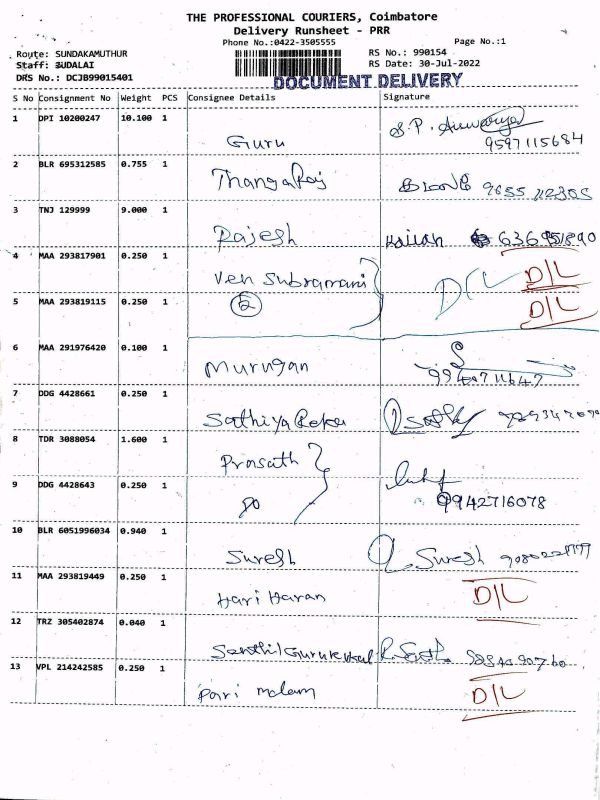 THE PROFESSIONAL COURIERS, Coimbatore
Delivery Runsheet - PRR
Phone No.:0422-3505555 Page No.:1
Route: SUNDAKAMUTHUR RS No.: 990154
Staff: SUDALAI RS Date: 30-Jul-2022
DRS No.: DCJB99015401 DOCUMENT DELIVERY
S No Consignment No Weight PCS Consignee Details Signature
1 DPI 10200247 10.100 1 Guru S.P. 9597115684
2 BLR 695312585 0.755 1 ThangaRaj
3 TNJ 129999 9.000 1 Rajesh
4 MAA 293817901 0.250 1 Ven Subramani D/L D/L
5 MAA 293819115 0.250 1 D/L
6 MAA 291976420 0.100 1 Murugan 9940711647
7 DDG 4428661 0.250 1
8 TDR 3088054 1.600 1 Prasath
9 DDG 4428643 0.250 1 Do 9942716078
10 BLR 6051996034 0.940 1 Suresh Suresh
11 MAA 293819449 0.250 1 Hari Haran D/L
12 TRZ 305402874 0.040 1
13 VPL 214242585 0.250 1 Pari malam D/L